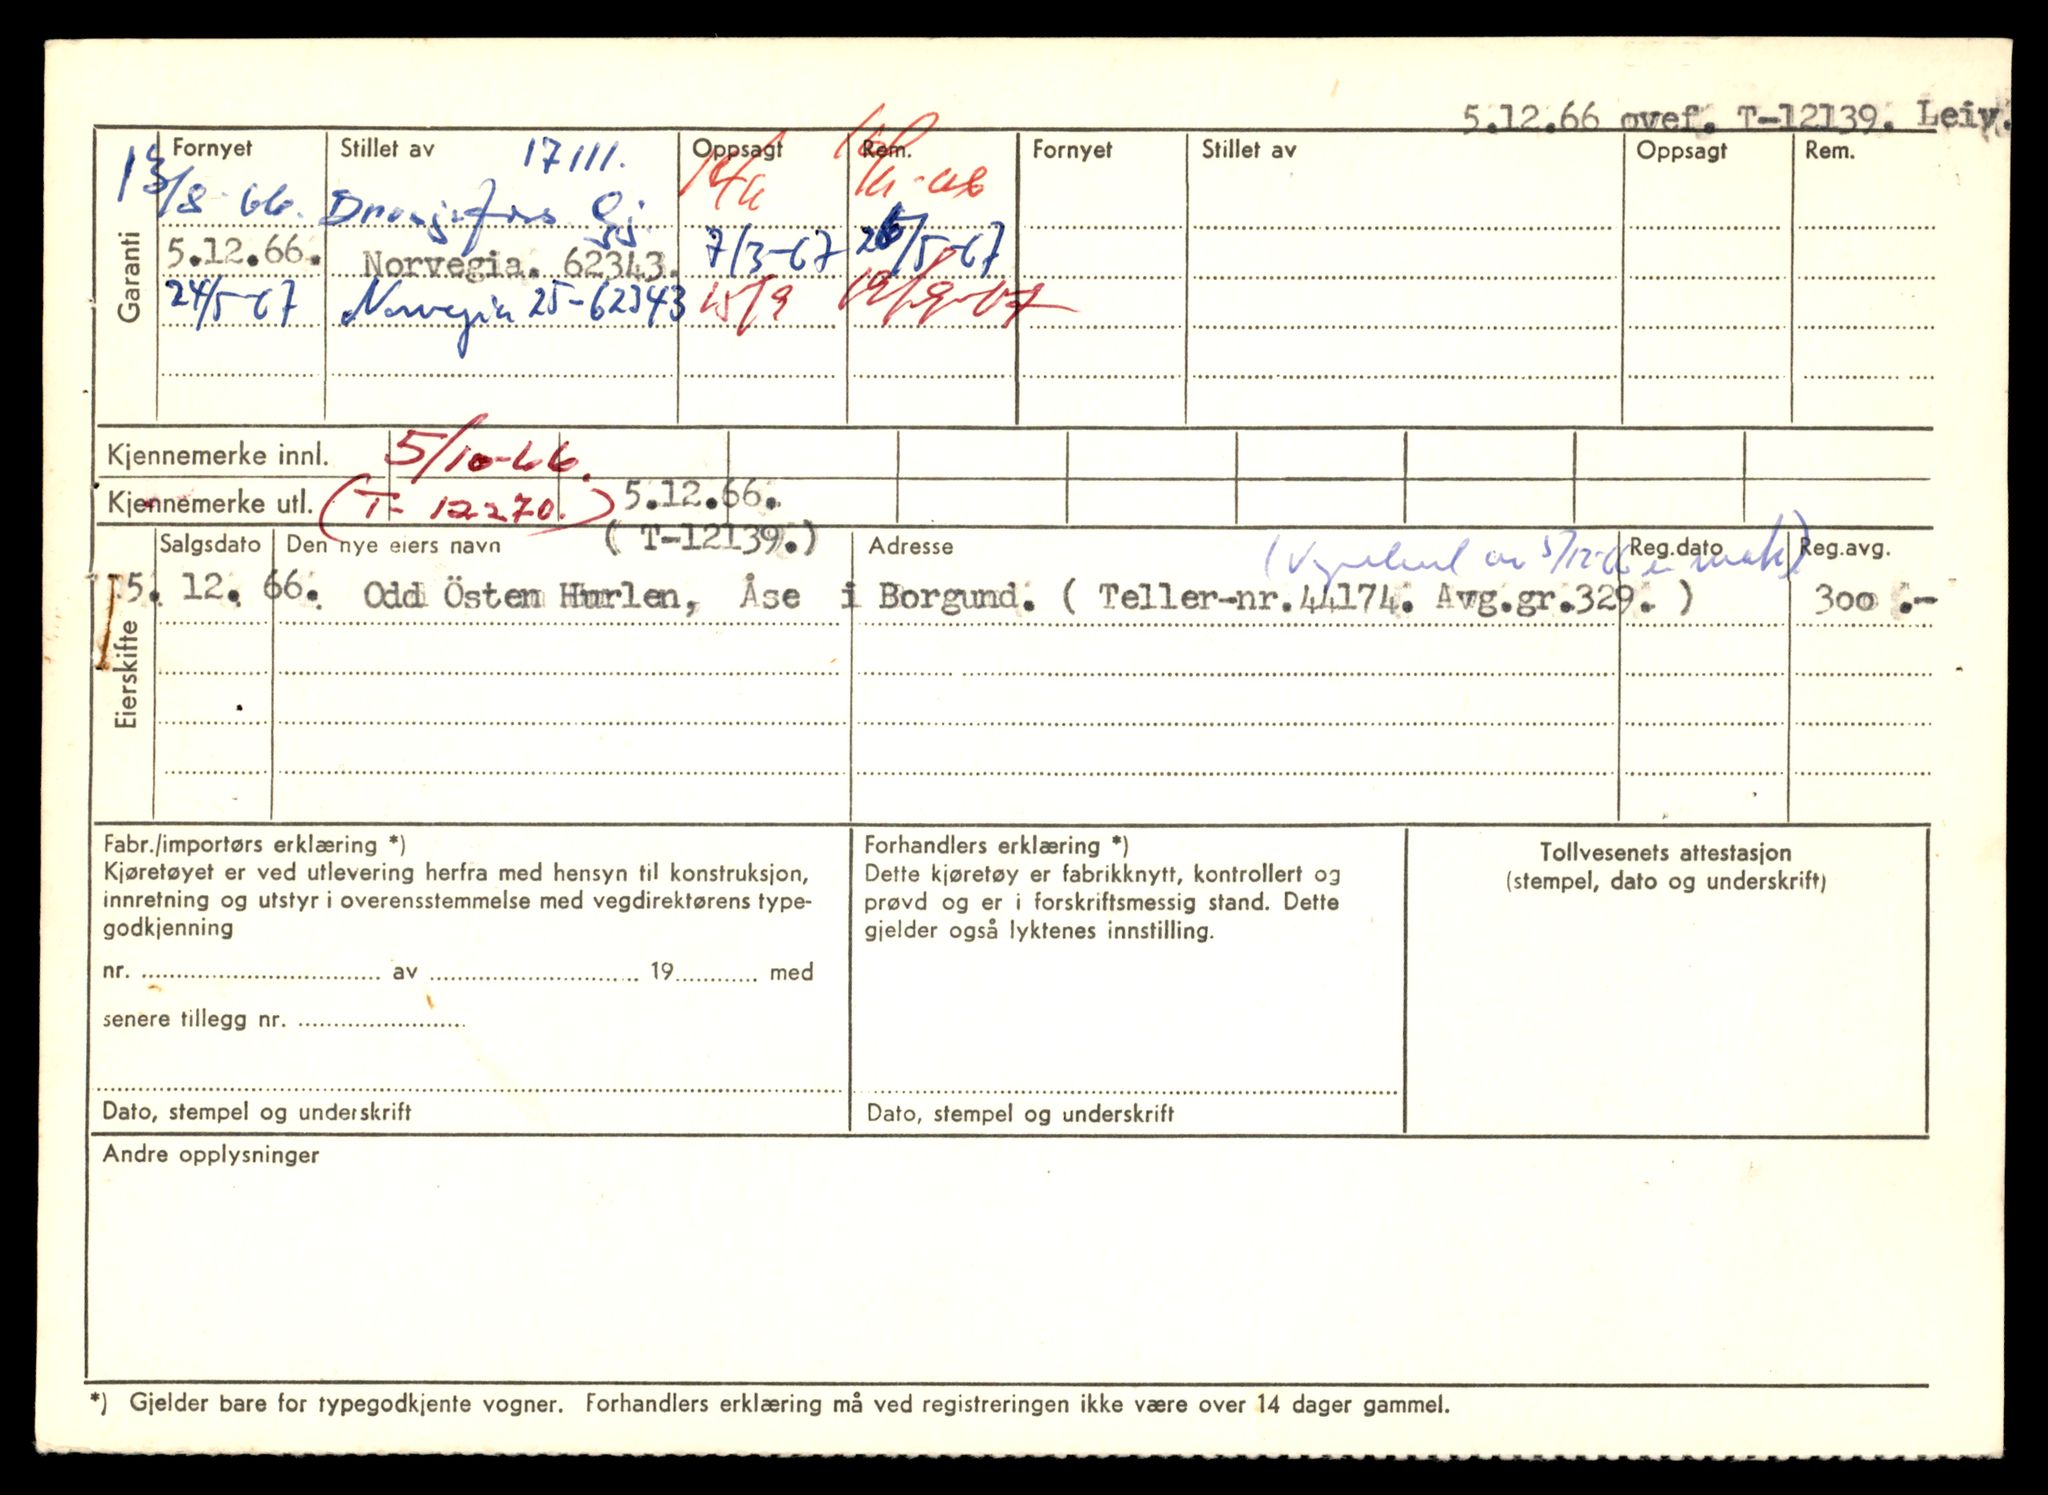 5.12.66 ovef. T-12139. Leiv.
Garanti
Fornyet Stillet av 17111. Oppsagt Rem. Fornyet Stillet av Oppsagt Rem.
13/8-66.
5.12.66. Norvegia. 62343. 7/3-67 26/5-67
24/5-67 Norvegia 25-62343 15/9 19/9-67
Kjennemerke innl. 5/10-66.
Kjennemerke utl. (T-12270.) 5.12.66.
(T-12139.)
Eierskifte
Salgsdato Den nye eiers navn Adresse Reg.dato Reg.avg.
5.12.66. Odd Östen Hurlen, Åse i Borgund. ( Teller-nr.44174. Avg.gr.329. ) 300.-
Fabr./importørs erklæring *)
Kjøretøyet er ved utlevering herfra med hensyn til konstruksjon,
innretning og utstyr i overensstemmelse med vegdirektørens type-
godkjenning
nr. av 19 med
senere tillegg nr.
Dato, stempel og underskrift
Forhandlers erklæring *)
Dette kjøretøy er fabrikknytt, kontrollert og
prøvd og er i forskriftsmessig stand. Dette
gjelder også lyktenes innstilling.
Dato, stempel og underskrift
Tollvesenets attestasjon
(stempel, dato og underskrift)
Andre opplysninger
*) Gjelder bare for typegodkjente vogner. Forhandlers erklæring må ved registreringen ikke være over 14 dager gammel.